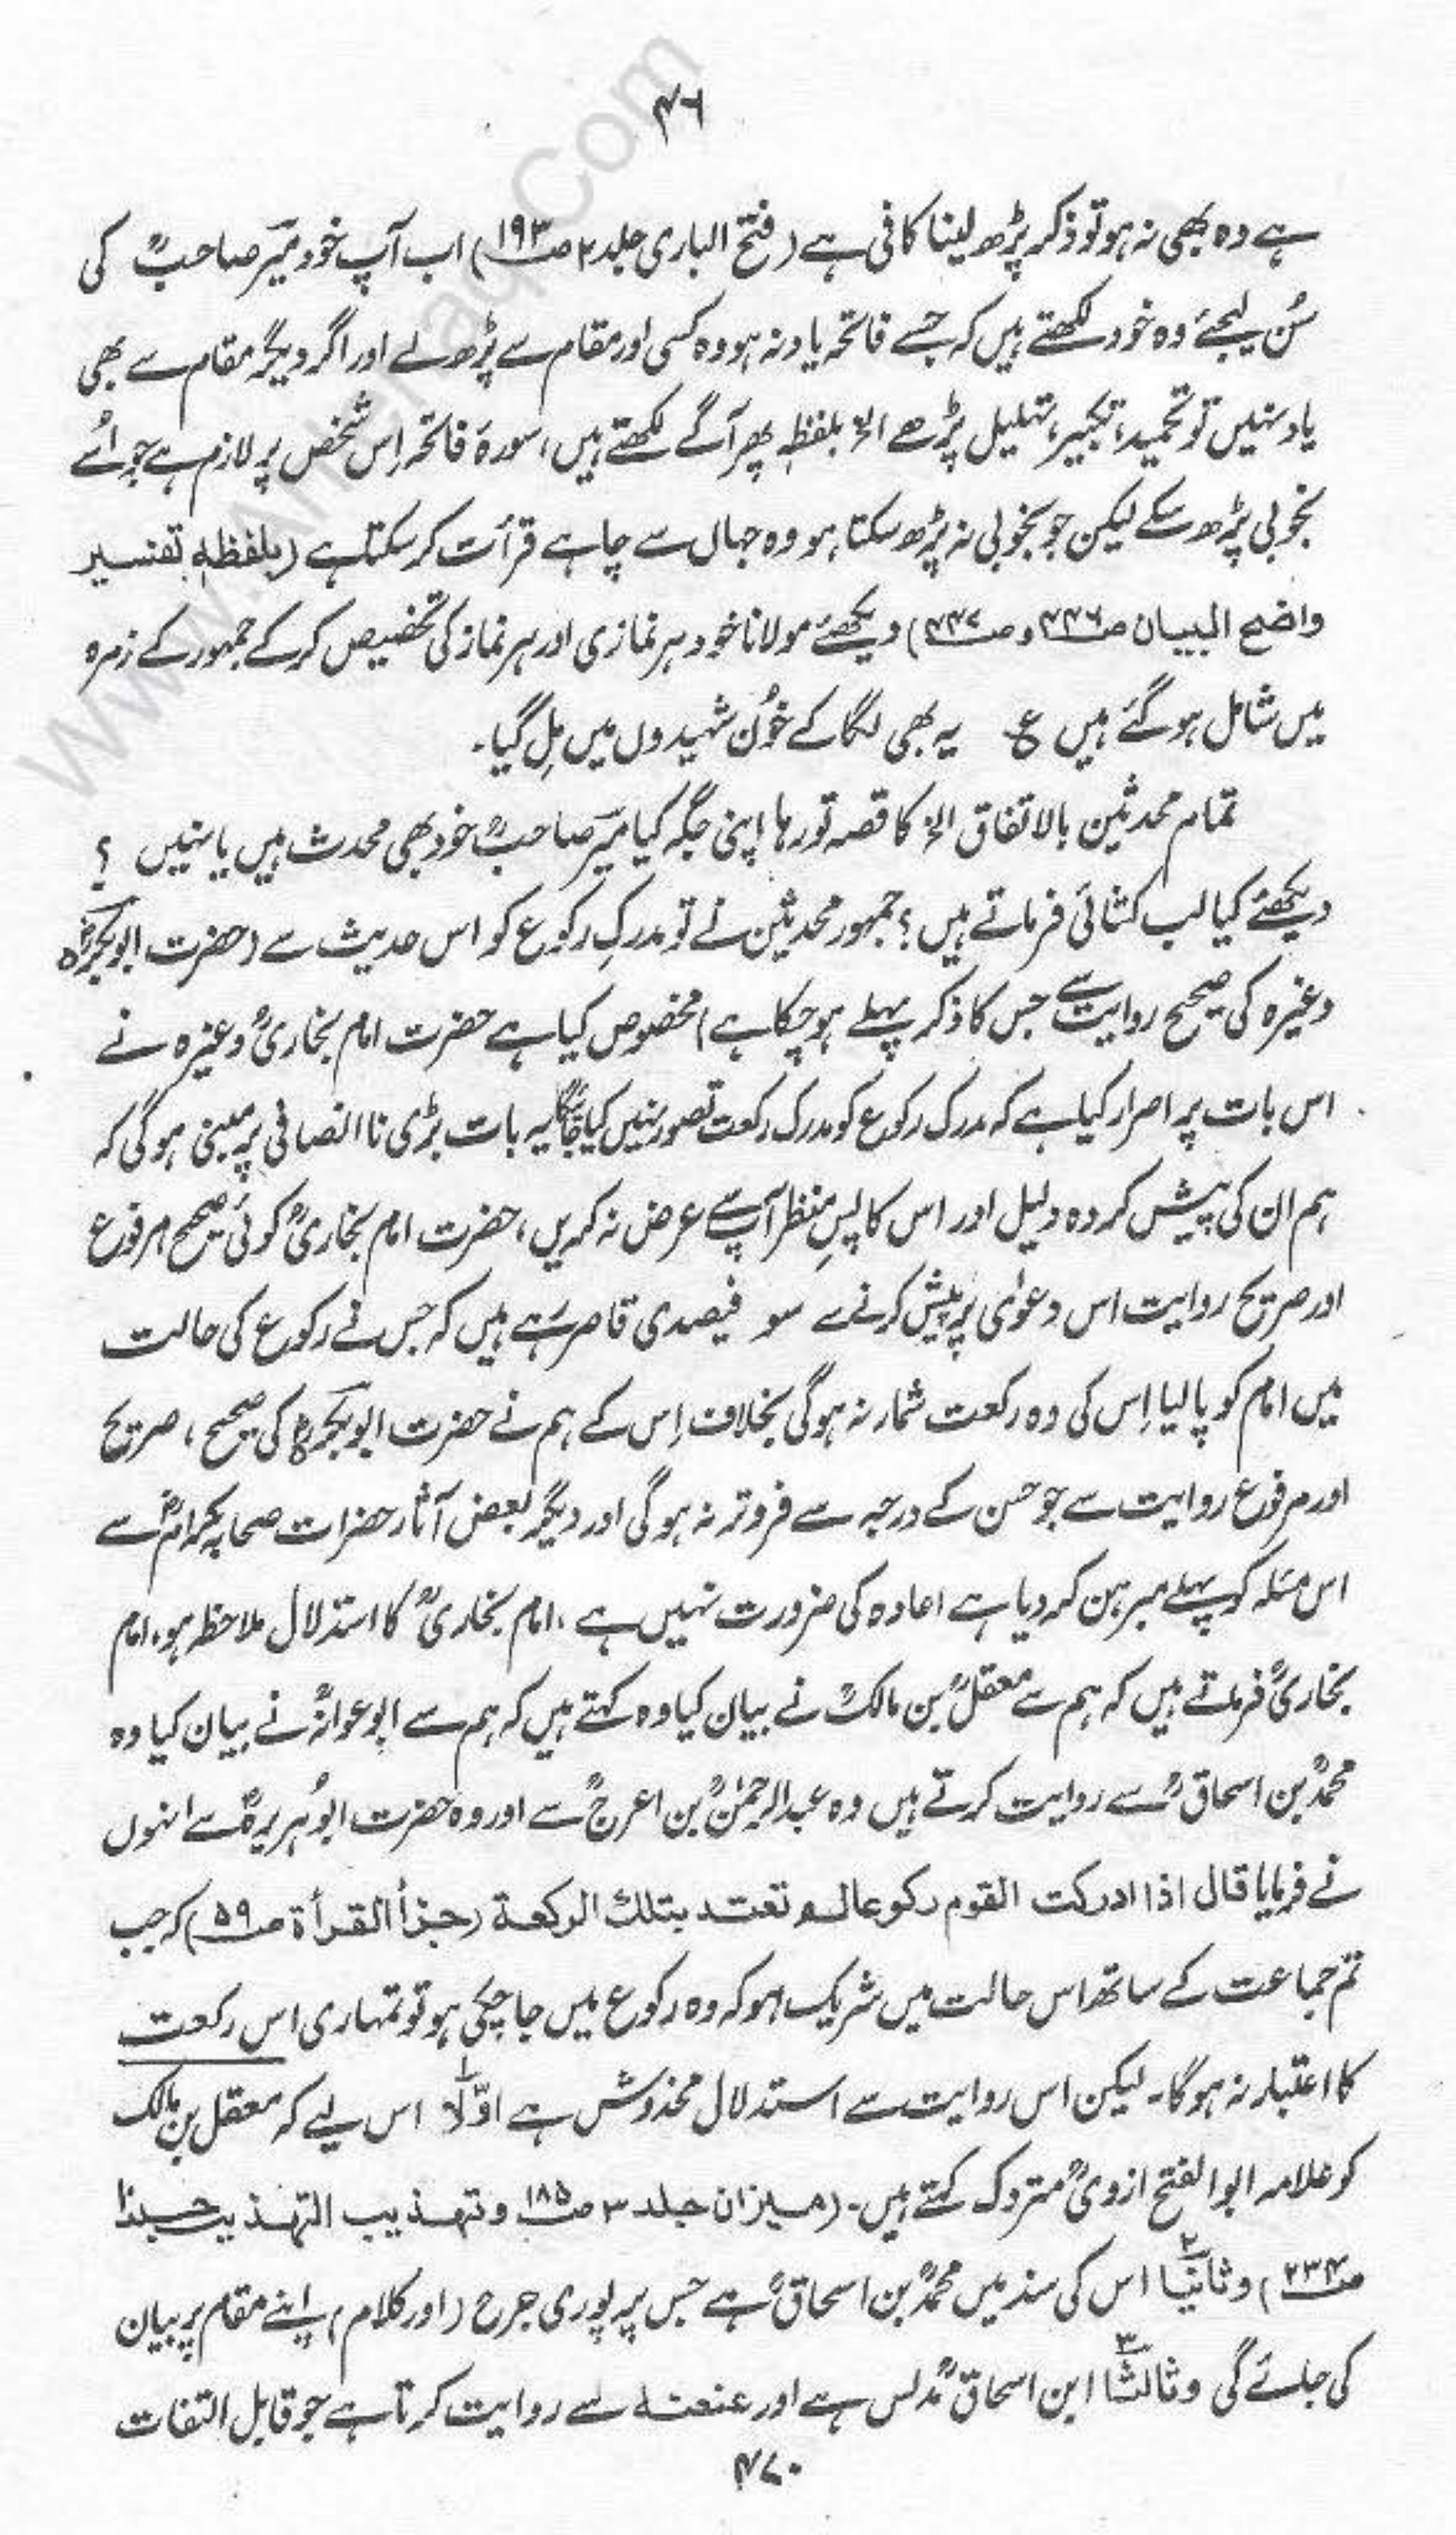 ۴۶
ہے وہ بھی نہ ہو تو ذکر پڑھ لینا کافی ہے (فتح الباری جلد ۲ ص۱۹۳) اب آپ خود میر صاحبؒ کی
سُن لیجئے وہ خود لکھتے ہیں کہ جسے فاتحہ یاد نہ ہو وہ کسی اور مقام سے پڑھ لے اور اگر دیگر مقام سے بھی
یاد نہیں تو تحمید، تکبیر، تہلیل پڑھے الخ بلفظہٖ پھر آگے لکھتے ہیں، سورۃ فاتحہ اِس شخص پر لازم ہے جو اسے
بخوبی پڑھ سکے لیکن جو بخوبی نہ پڑھ سکتا ہو وہ جہاں سے چاہے قرأت کر سکتا ہے (بلفظہٖ تفسیر
واضح البیان ص۴۳۶ و ص۴۳۷) دیکھئے مولانا خود ہر نمازی اور ہر نماز کی تخصیص کر کے جمہور کے زمرہ
میں شامل ہو گئے ہیں ع یہ بھی لگا کے خُون شہیدوں میں مِل گیا۔
تمام محدثین بالاتفاق الخ کا قصہ تو رہا اپنی جگہ کیا میر صاحبؒ خود بھی محدث ہیں یا نہیں ؟
دیکھئے کیا لب کشائی فرماتے ہیں؟ جمہور محدثین نے تو مدرکِ رکوع کو اس حدیث سے (حضرت ابوبکرہؓ
وغیرہ کی صحیح روایت سے جس کا ذکر پہلے ہو چکا ہے) مخصوص کیا ہے حضرت امام بخاریؒ وغیرہ نے
اس بات پر اصرار کیا ہے کہ مدرک رکوع کو مدرک رکعت تصور نہیں کیا جائیگا یہ بات بڑی ناانصافی پر مبنی ہو گی کہ
ہم ان کی پیش کردہ دلیل اور اس کا پسِ منظر آپ سے عرض نہ کریں، حضرت امام بخاریؒ کوئی صحیح مرفوع
اور صریح روایت اس دعوٰی پر پیش کرنے سے سو فیصدی قاصر رہے ہیں کہ جس نے رکوع کی حالت
میں امام کو پا لیا اِس کی وہ رکعت شمار نہ ہوگی بخلاف اِس کے ہم نے حضرت ابوبکرہؓ کی صحیح، صریح
اور مرفوع روایت سے جو حسن کے درجہ سے فروتر نہ ہو گی اور دیگر بعض آثار حضرات صحابہ کرامؓ سے
اس مسئلہ کو پہلے مبرہن کر دیا ہے اعادہ کی ضرورت نہیں ہے، امام بخاریؒ کا استدلال ملاحظہ ہو، امام
بخاریؒ فرماتے ہیں کہ ہم سے معقلؒ بن مالکؒ نے بیان کیا وہ کہتے ہیں کہ ہم سے ابو عوانہؒ نے بیان کیا وہ
محمدؒ بن اسحاقؒ سے روایت کرتے ہیں وہ عبدالرحمٰنؒ بن اعرجؒ سے اور وہ حضرت ابوُہریرہؓ سے انہوں
نے فرمایا قال اذا ادرکت القوم رکوعا لم تعتد بتلك الرکعة (جزأ القرأة ص۵۹) کہ جب
تم جماعت کے ساتھ اس حالت میں شریک ہو کہ وہ رکوع میں جا چکی ہو تو تمہاری اس رکعت
کا اعتبار نہ ہو گا۔ لیکن اس روایت سے استدلال مخدوش ہے اوّلاً اس لیے کہ معقل بن مالک
کو علامہ ابوالفتح ازدیؒ متروک کہتے ہیں۔ (میزان جلد ۳ ص۱۸۵ و تہذیب التہذیب جلد۱۰
ص۲۳۴) و ثانیًا اس کی سند میں محمدؒ بن اسحاقؒ ہے جس پر پوری جرح (اور کلام) اپنے مقام پر بیان
کی جائے گی و ثالثًا ابن اسحاقؒ مُدلس ہے اور عنعنہ سے روایت کرتا ہے جو قابل التفات
۴۷۰